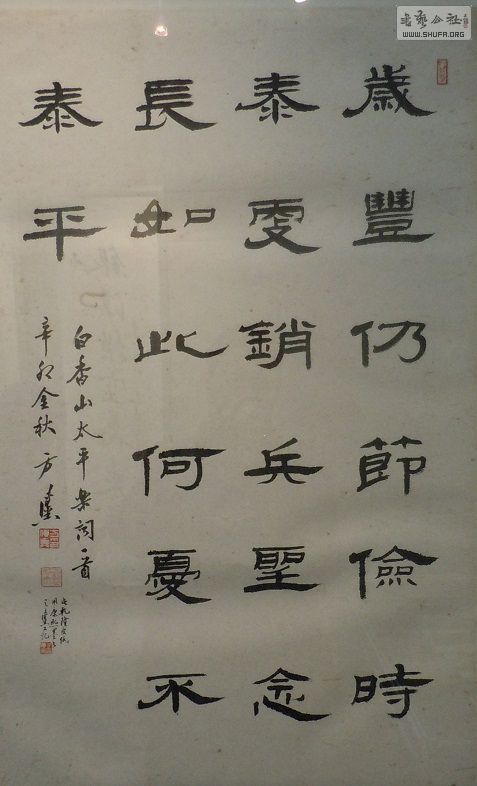 書藝公社
WWW.SHUFA.ORG
歲豐仍節儉時
泰更銷兵聖念
長如此何憂不
泰平
白香山太平樂詞一首
辛卯金秋 方